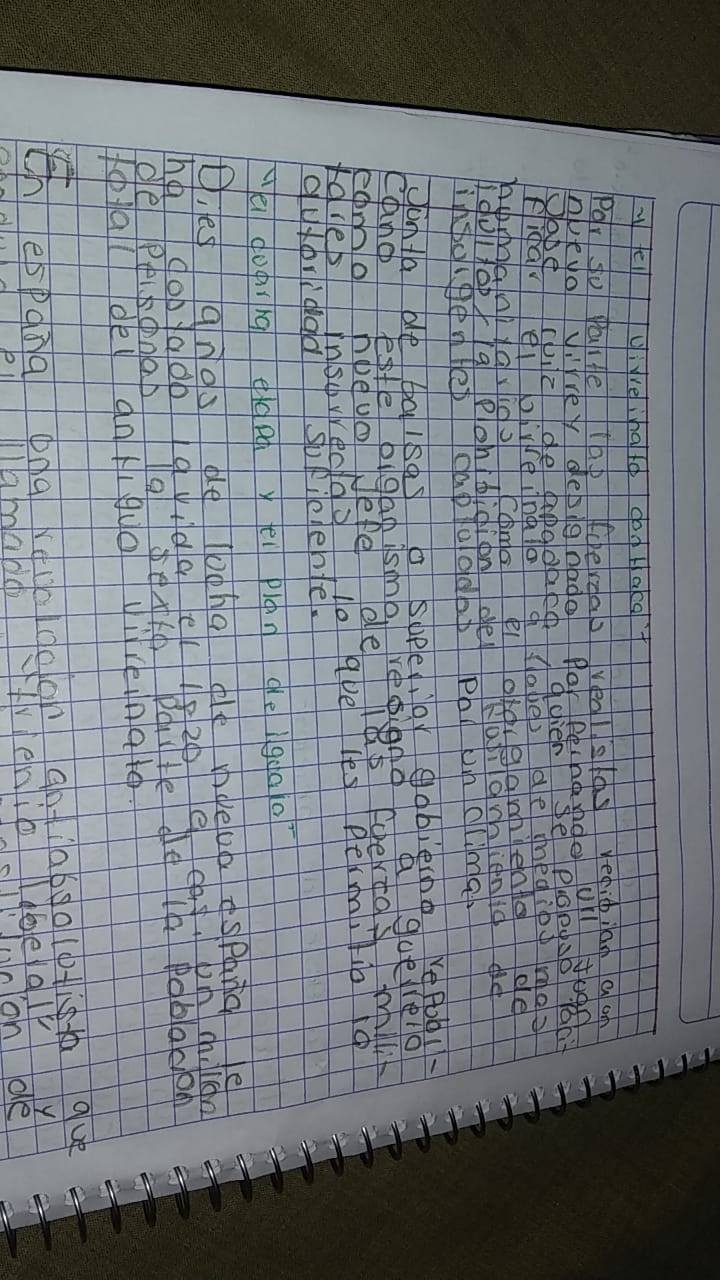 y el virreinato contraca"
Por su parte las fuerzas realistas recibian a un
nuevo virrey designado por Fernando VII Juan
Jose ruiz de apodaca quien se propuso paci-
ficar el virreinato a traves de medios mas
humanitarios como el otorgamiento de
indultos y la prohibicion del fusilamiento de
insurgentes capturados por un clima.
Junta de balsas o superior gobierno republi-
cano este organismo resigno a guerrero
como nuevo jefe de las fuerzas mili-
tares insurrectas lo que les permitio lo
autoridad suficiente.
"la cuarta etapa y el plan de iguala"
Dies años de lucha de nueva españa le
ha costado la vida el 1820 a casi un millon
de personas la sexta parte de la poblacion
total del antiguo virreinato.
En españa una revolucion antiabsolutista que
llamado "trienio liberal" y
de